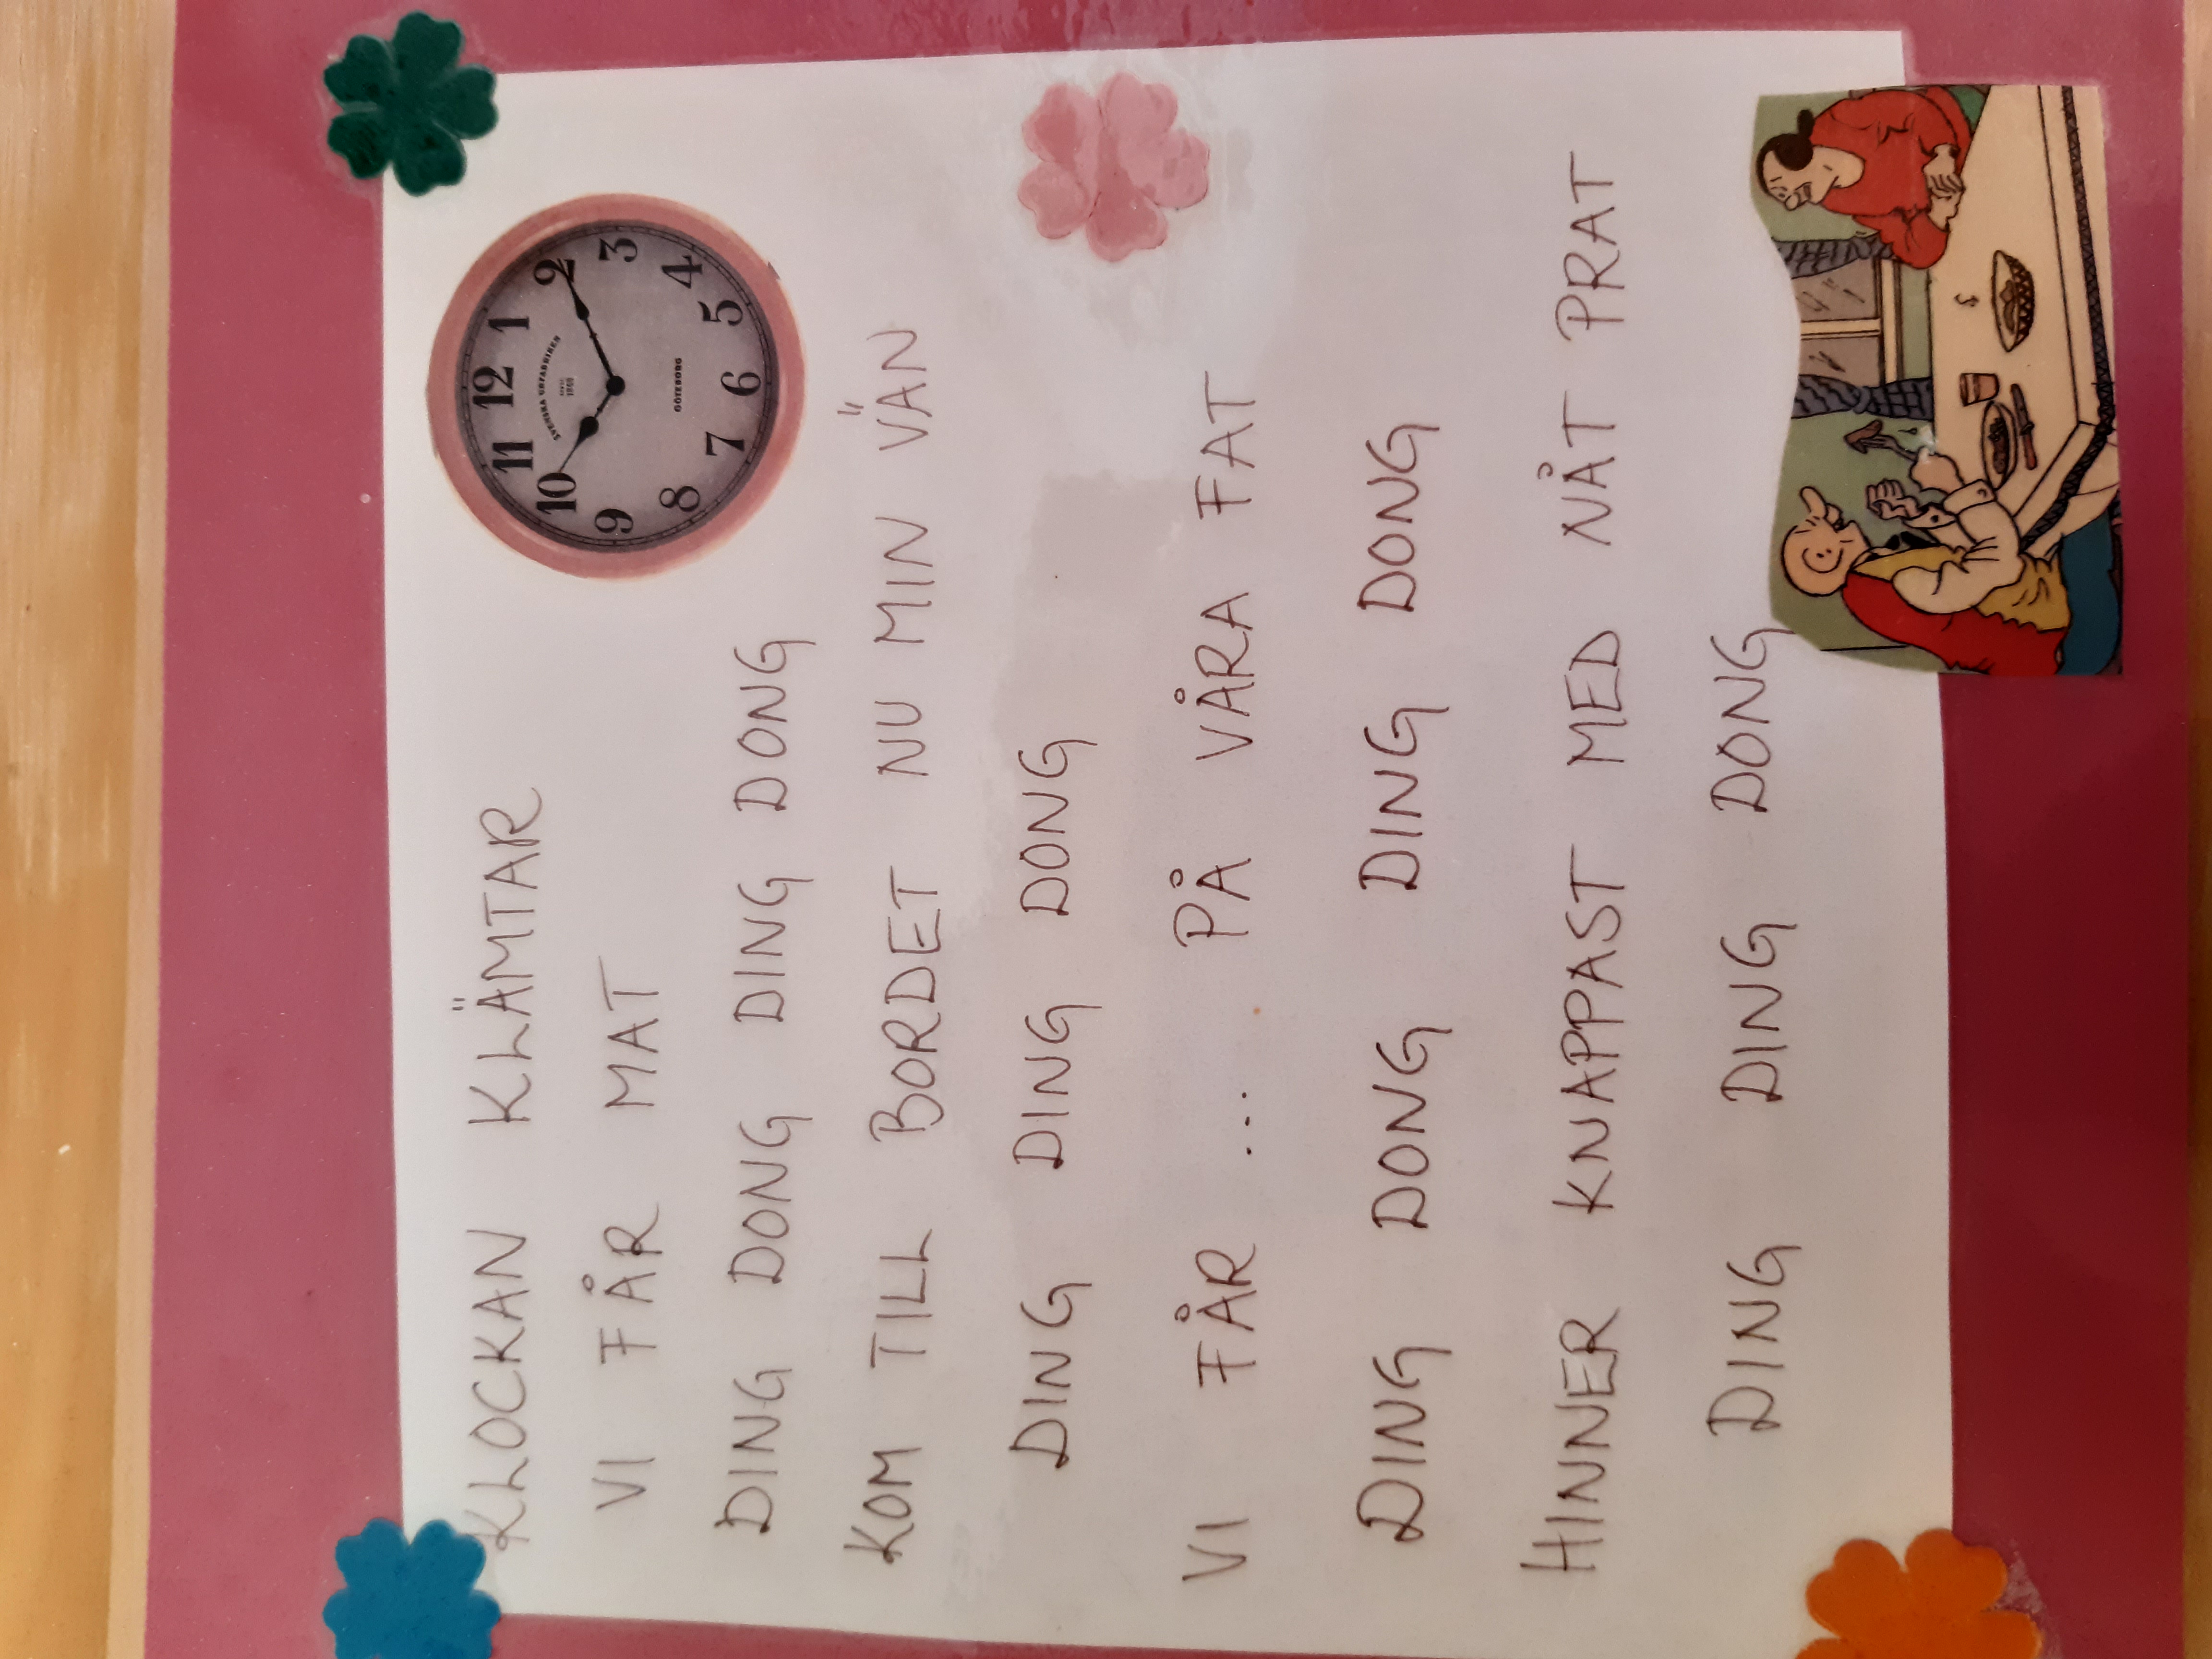 KLOCKAN KLÄMTAR
VI FÅR MAT
DING DONG DING DONG
KOM TILL BORDET NU MIN VÄN
DING DING DONG
VI FÅR ... PÅ VÅRA FAT
DING DONG DING DONG
HINNER KNAPPAST MED NÅT PRAT
DING DING DONG
12
1
2
3
4
5
6
7
8
9
10
11
SVENSKA URFABRIKEN
GÖTEBORG